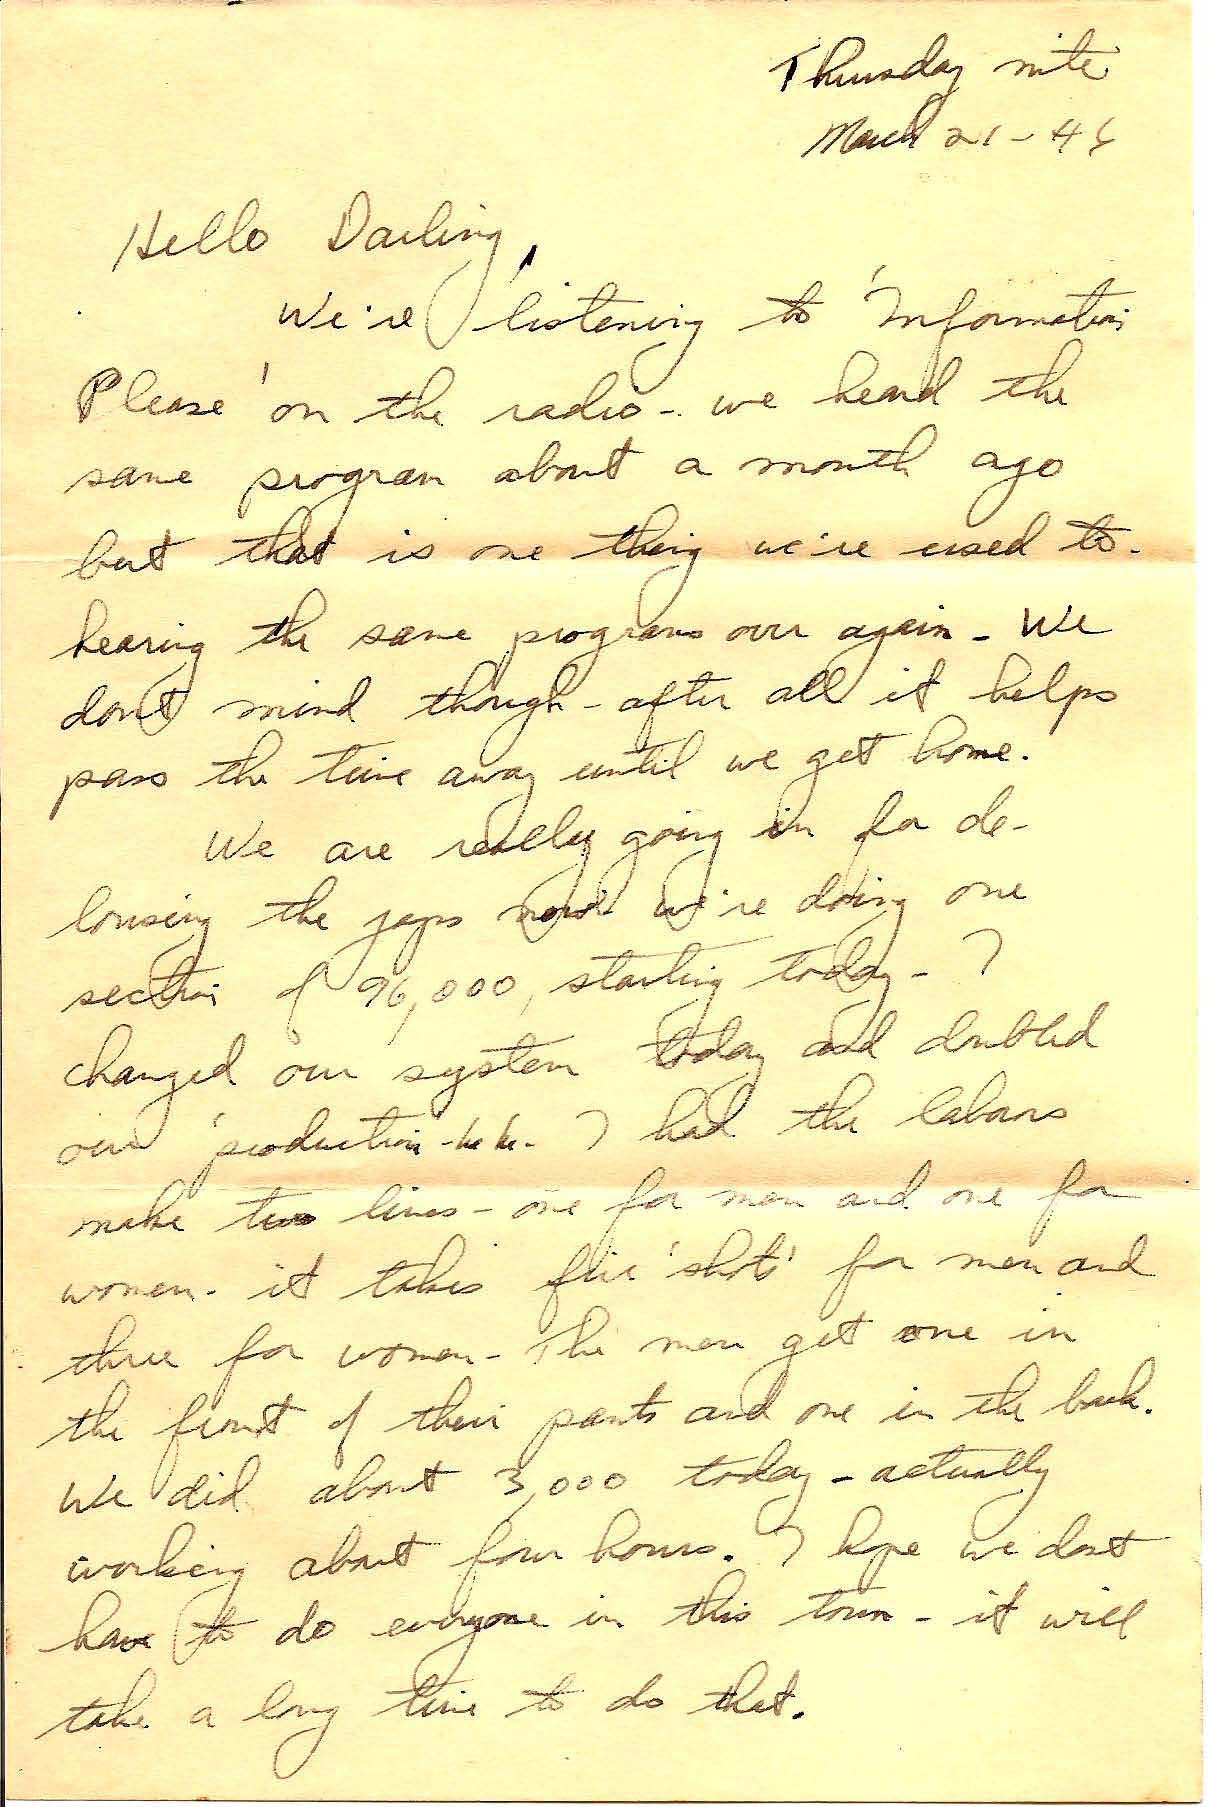 Thursday nite
March 21-46
Hello Darling,
We're listening to 'Information
Please' on the radio - we heard the
same program about a month ago
but that is one thing we're used to -
hearing the same programs over again - We
dont mind though - after all it helps
pass the time away until we get home.
We are really going in for de-
lousing the japs now - we're doing one
section of 96,000, starting today - I
changed our system today and doubled
our 'production - I had the labors
make two lines - one for men and one for
women - it takes five 'shots' for men and
three for women - The men get one in
the front of their pants and one in the back.
We did about 3,000 today - actually
working about four hours. I hope we dont
have to do everyone in this town - it will
take a long time to do that.